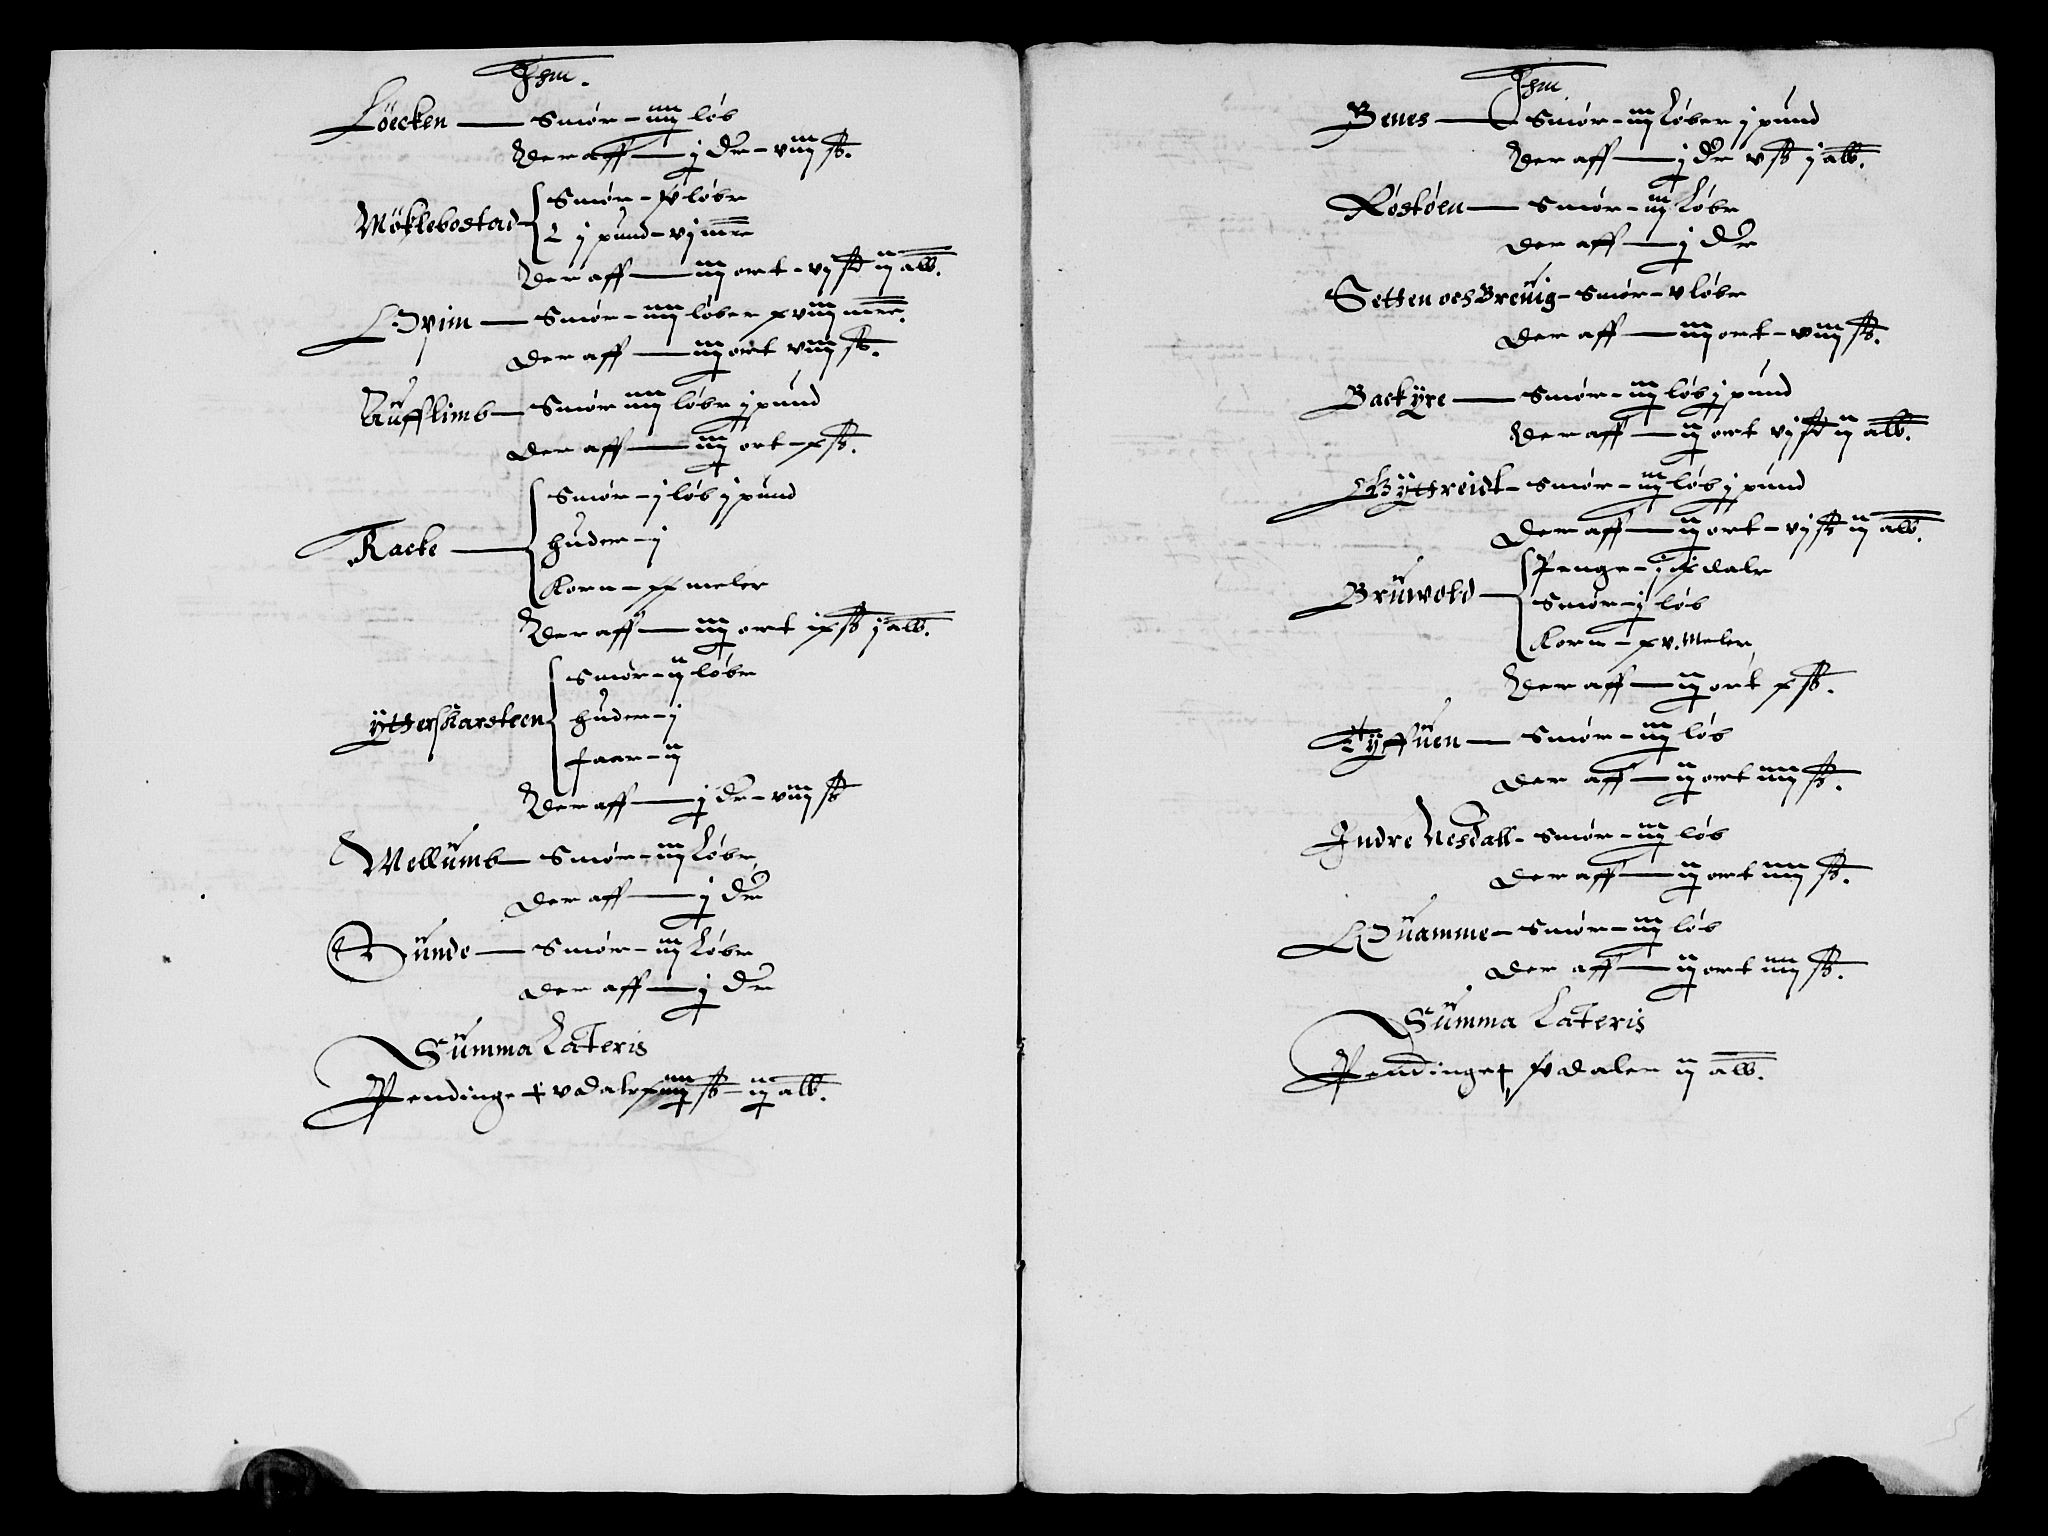 Jhm.
Löecken — Smör – iiij löb
Der aff — j Dr – viij ß.
Möklebostad – Smör – xv löbr
1 pund – vj mrc
Der aff — iij ort – vj ß ij alb.
Opim — Smör – iiij löber xviij mrc.
Der aff — iij ort viij ß.
Aüfflimb — Smör iiij löbr j pund
Der aff — iij ort – x ß.
Racke — Smör – j löb j pund
huder – j
Korn – xx meler
Der aff — iij ort ix ß j alb.
ÿtterskarsteen Smör – ij löbr
huder – j
faar – ij
Der aff — j Dr – viij ß
Mellümb — Smör – iij Löbr
Der aff — j Dr
Sünde — Smör – iij Löbr
der aff — j Dr
Sümma Lateris
Pendinge + v dalr ß – iij alb.
Jhm
Benes — Smör – iij Löber j pund
Der aff — j Dr v ß j alb.
Röstöen — Smör – iij Löbr
Der aff — j Dr
Setten och Breüig – Smör – v löbr
Der aff — iij ort – viij ß.
Backÿre — Smör – iij löb j pund
Der aff — ij ort vj ß ij alb.
Smör – iij löb j pund
Der aff — ij ort – vj ß ij alb.
Brüwold — Penge – j dalr
Smör – j löb
Korn – xv. Meler
Der aff — ij ort x ß.
Tÿffüen — Smör – iij löb
Der aff — ij ort iiij ß.
Indre Nesdall – Smör – iij löb
Der aff — ij ort iiij ß.
Quamme – Smör – iij löb
Der aff — ij ort iiij ß.
Sümma Lateris
Pendinge + xv daler ij alb.
5